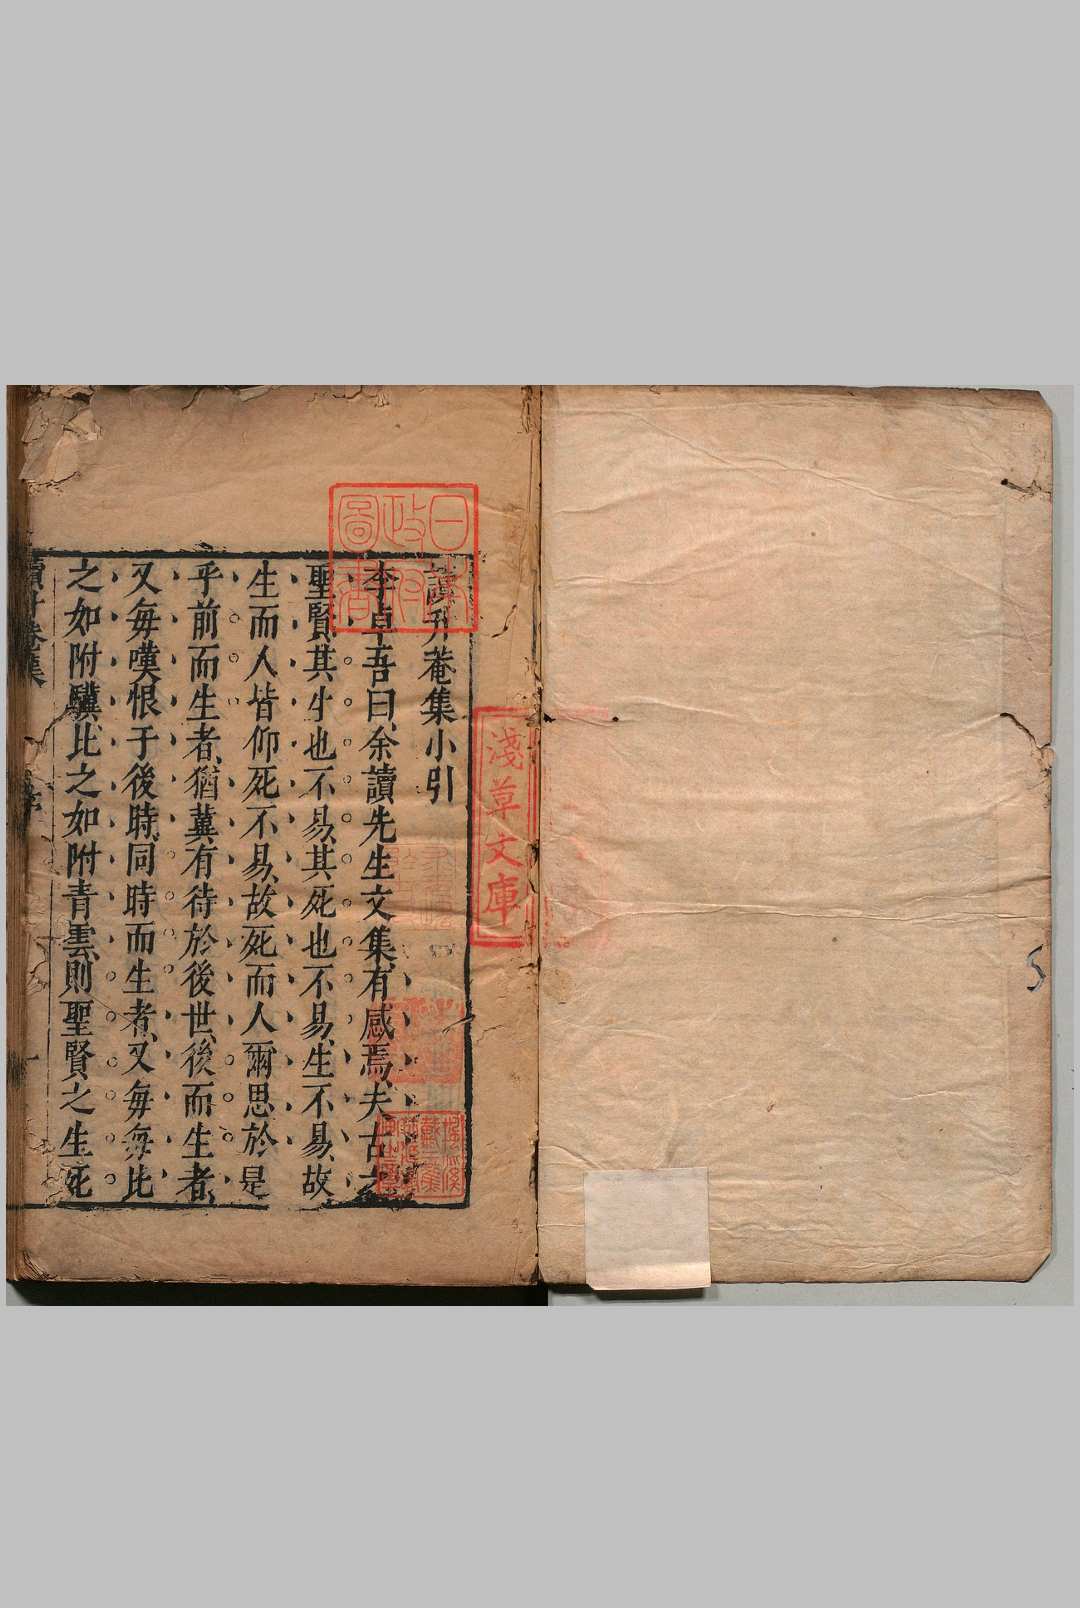 讀升菴集小引
李卓吾曰余讀先生文集有感焉夫古之
聖賢其生也不易其死也不易生不易故
生而人皆仰死不易故死而人爾思於是
乎前而生者猶冀有待於後世後而生者
又每嘆恨于後時同時而生者又每每比
之如附驥比之如附青雲則聖賢之生死
讀升菴集
序
一
日本
政府
圖書
淺草文庫
5